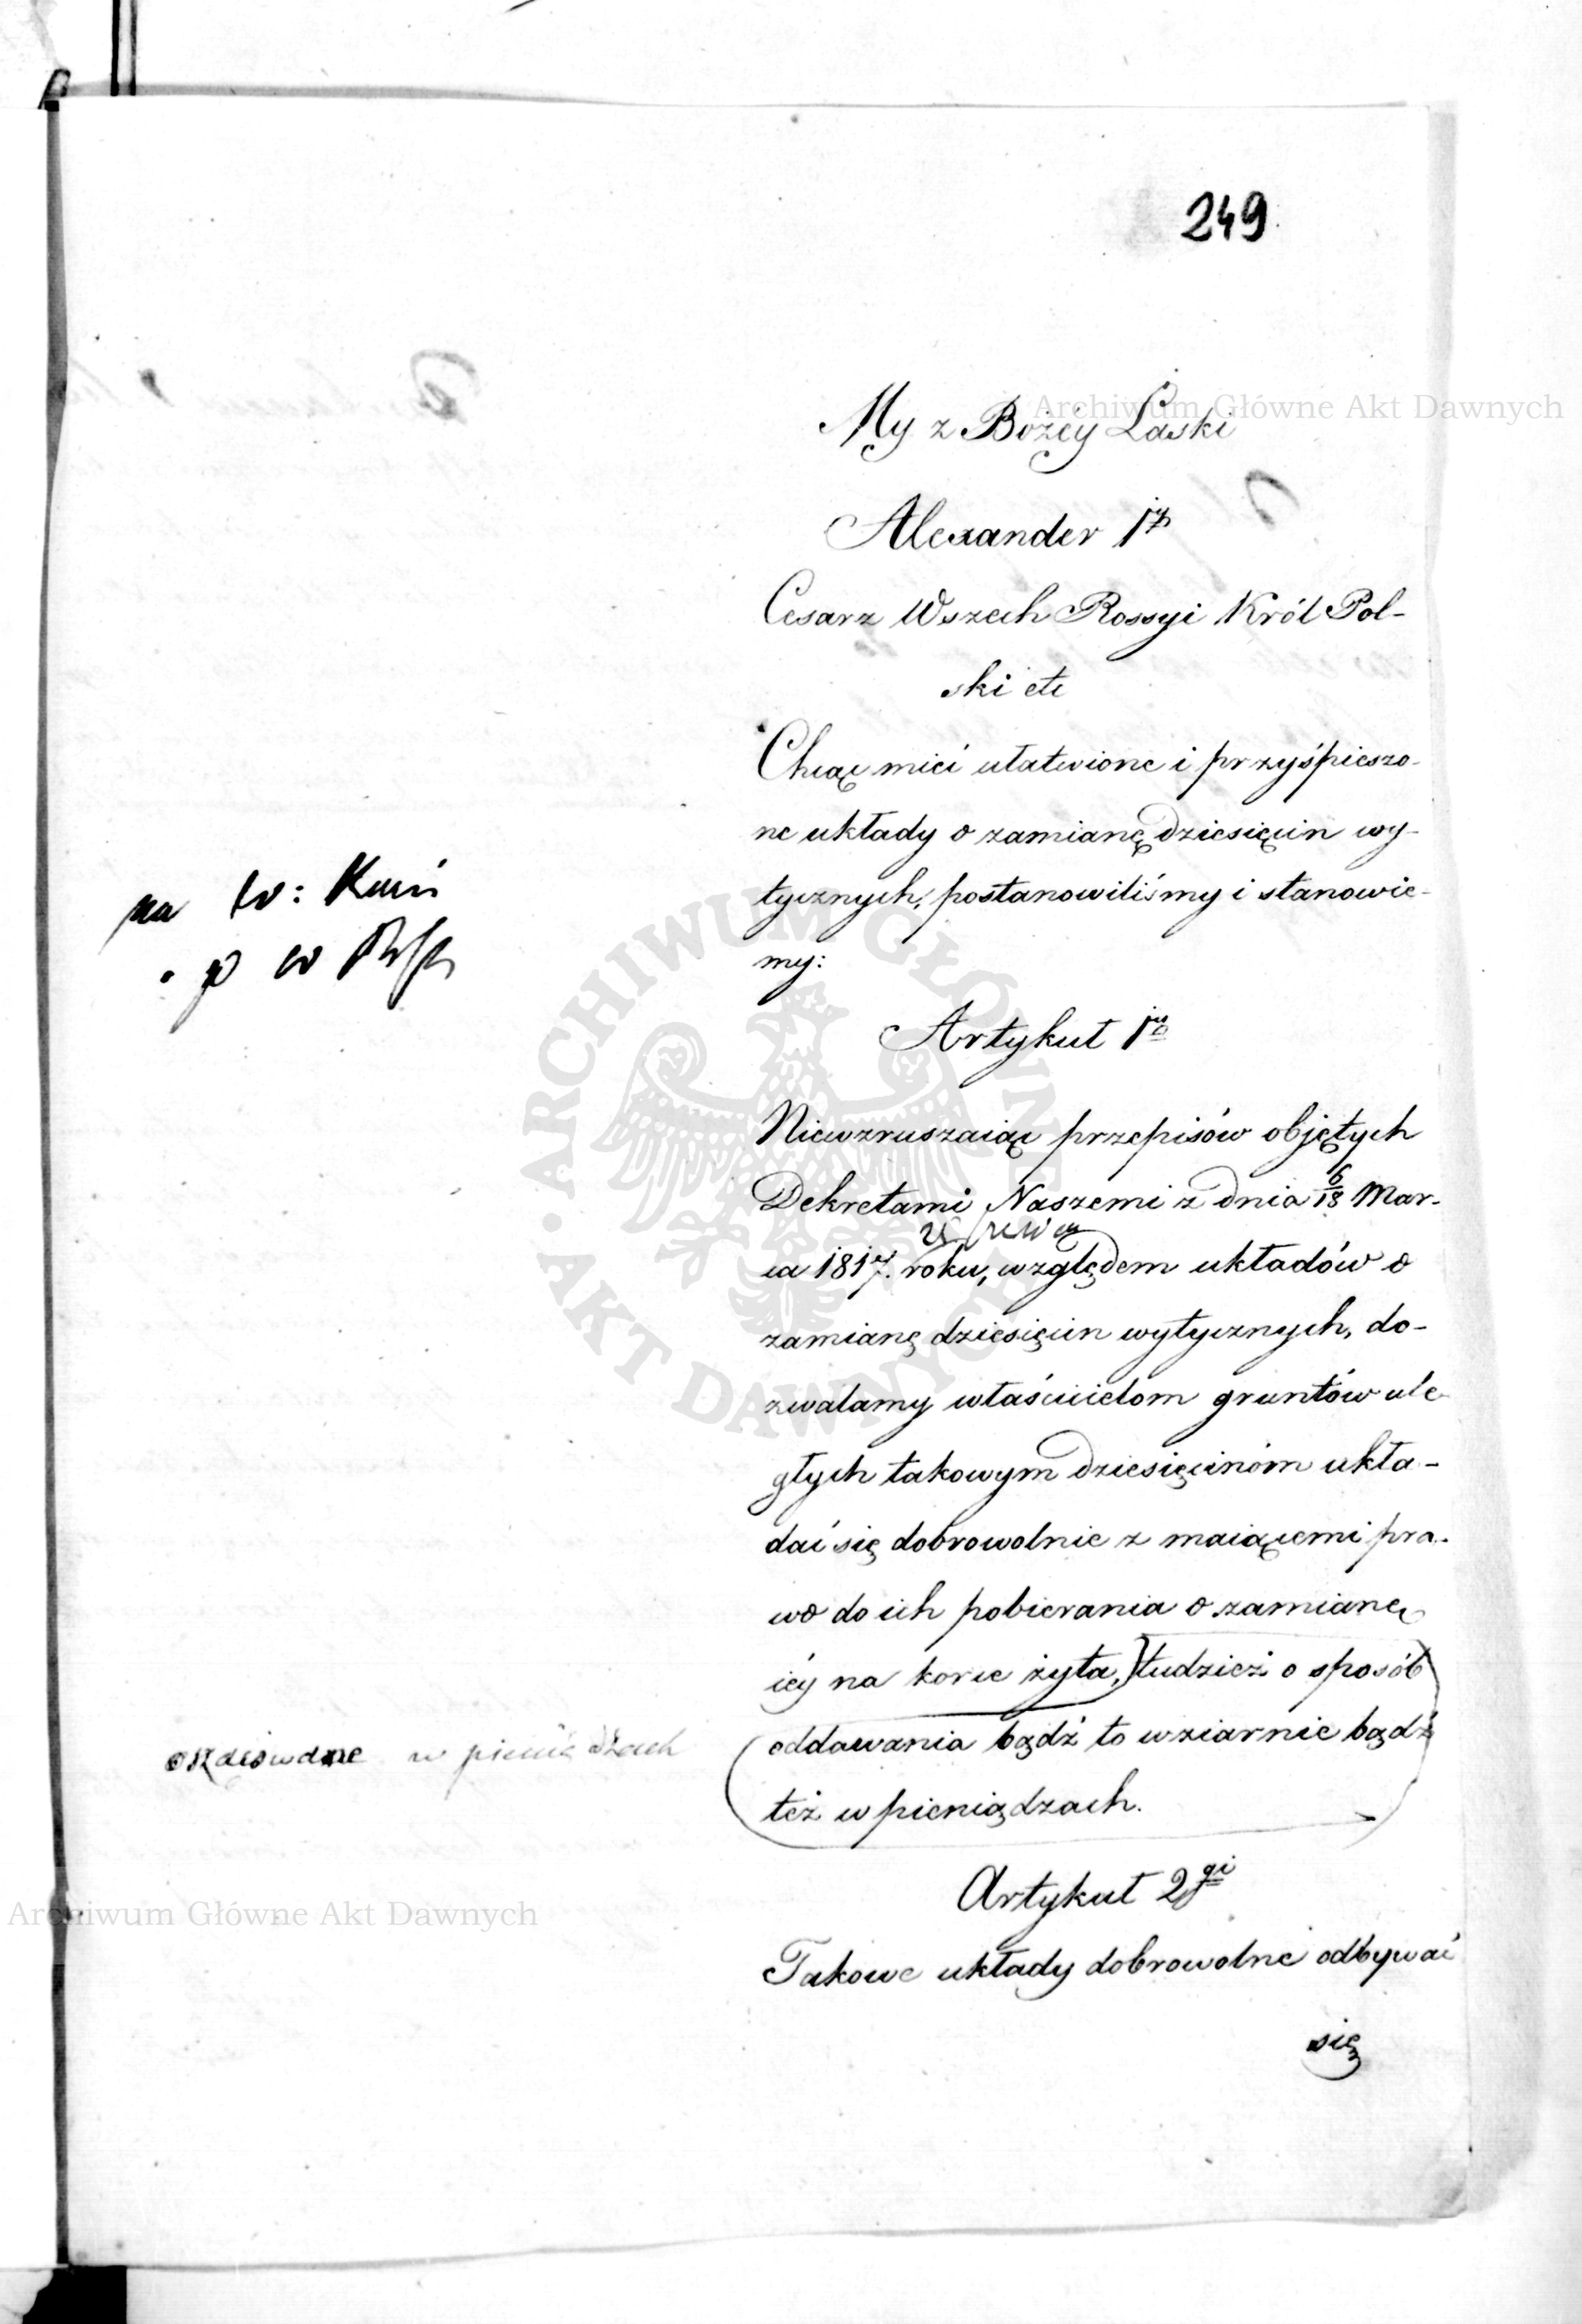 249
My z Bożéy Łaski
Alexander 1y
Cesarz Wszech Rossyi Król Pol-
ski etc
Chcąc mieć ułatwione i przyśpieszo-
ne układy o zamianę dziesięcin wy-
tycznych, postanowiliśmy i stanowie-
my:
Artykuł 1y
Niewzruszaiąc przepisów objętych
Dekretami Naszemi z dnia 6/18 Mar-
ca 1817. roku, względem układów o
zamianę dziesięcin wytycznych, do-
zwalamy właścicielom gruntów ule-
głych takowym dziesięcinóm ukła-
dać się dobrowolnie z maiącemi pra-
wo do ich pobierania o zamianę
iéy na korce żyta, tudzież o sposób
oddawania bądź to w ziarnie bądź
też w pieniądzach.
Artykuł 2gi
Takowe układy dobrowolne odbywać
się
na w:
w
w pieniądzach
Archiwum Główne Akt Dawnych
ARCHIWUM GŁÓWNE
AKT DAWNYCH
Archiwum Główne Akt Dawnych